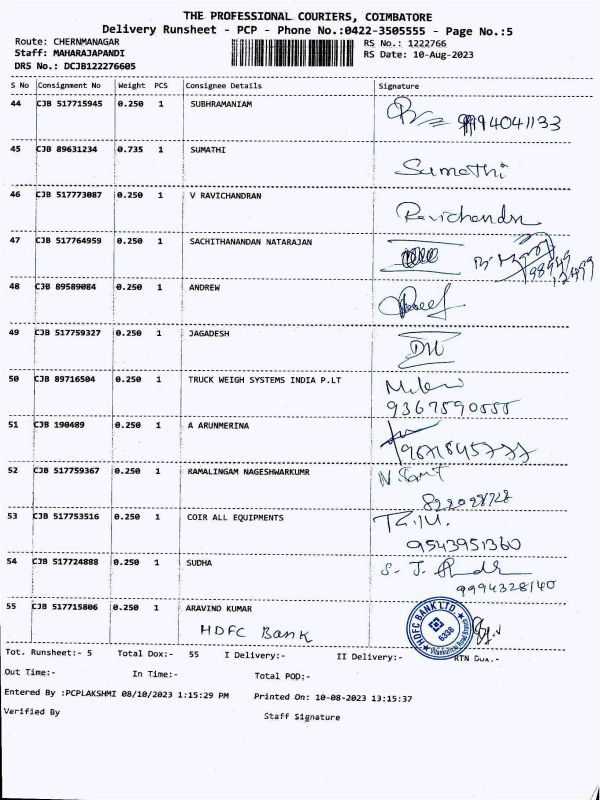 THE PROFESSIONAL COURIERS, COIMBATORE
Delivery Runsheet - PCP - Phone No.:0422-3505555 - Page No.:5
Route: CHERNMANAGAR RS No.: 1222766
Staff: MAHARAJAPANDI RS Date: 10-Aug-2023
DRS No.: DCJB122276605
S No Consignment No Weight PCS Consignee Details Signature
44 CJB 517715945 0.250 1 SUBHRAMANIAM 9994041133
45 CJB 89631234 0.735 1 SUMATHI Sumathi
46 CJB 517773087 0.250 1 V RAVICHANDRAN Ravichandn
47 CJB 517764959 0.250 1 SACHITHANANDAN NATARAJAN
48 CJB 89589084 0.250 1 ANDREW
49 CJB 517759327 0.250 1 JAGADESH
50 CJB 89716504 0.250 1 TRUCK WEIGH SYSTEMS INDIA P.LT
9367590555
51 CJB 190489 0.250 1 A ARUNMERINA
52 CJB 517759367 0.250 1 RAMALINGAM NAGESHWARKUMR
53 CJB 517753516 0.250 1 COIR ALL EQUIPMENTS
9543951360
54 CJB 517724888 0.250 1 SUDHA
9994328140
55 CJB 517715806 0.250 1 ARAVIND KUMAR
HDFC Bank HDFC BANK LTD. 6338
Tot. Runsheet:- 5 Total Dox:- 55 I Delivery:- II Delivery:- RTN Dox.-
Out Time:- In Time:- Total POD:-
Entered By :PCPLAKSHMI 08/10/2023 1:15:29 PM Printed On: 10-08-2023 13:15:37
Verified By Staff Signature